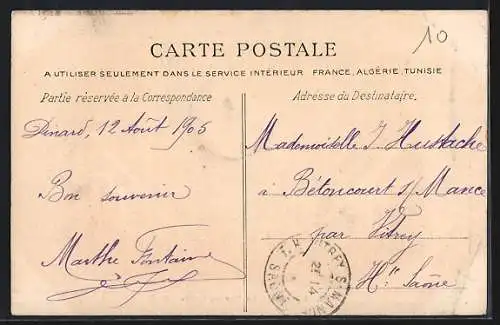 10
CARTE POSTALE
A UTILISER SEULEMENT DANS LE SERVICE INTÉRIEUR FRANCE, ALGÉRIE, TUNISIE
Partie réservée à la Correspondance
Adresse du Destinataire.
Dinard, 12 Août 1905
Bon souvenir
Marthe Fontaine
Mademoiselle J. Hustache
à Bétoncourt s/ Mance
par Vitrey
Hte Saône
VITREY